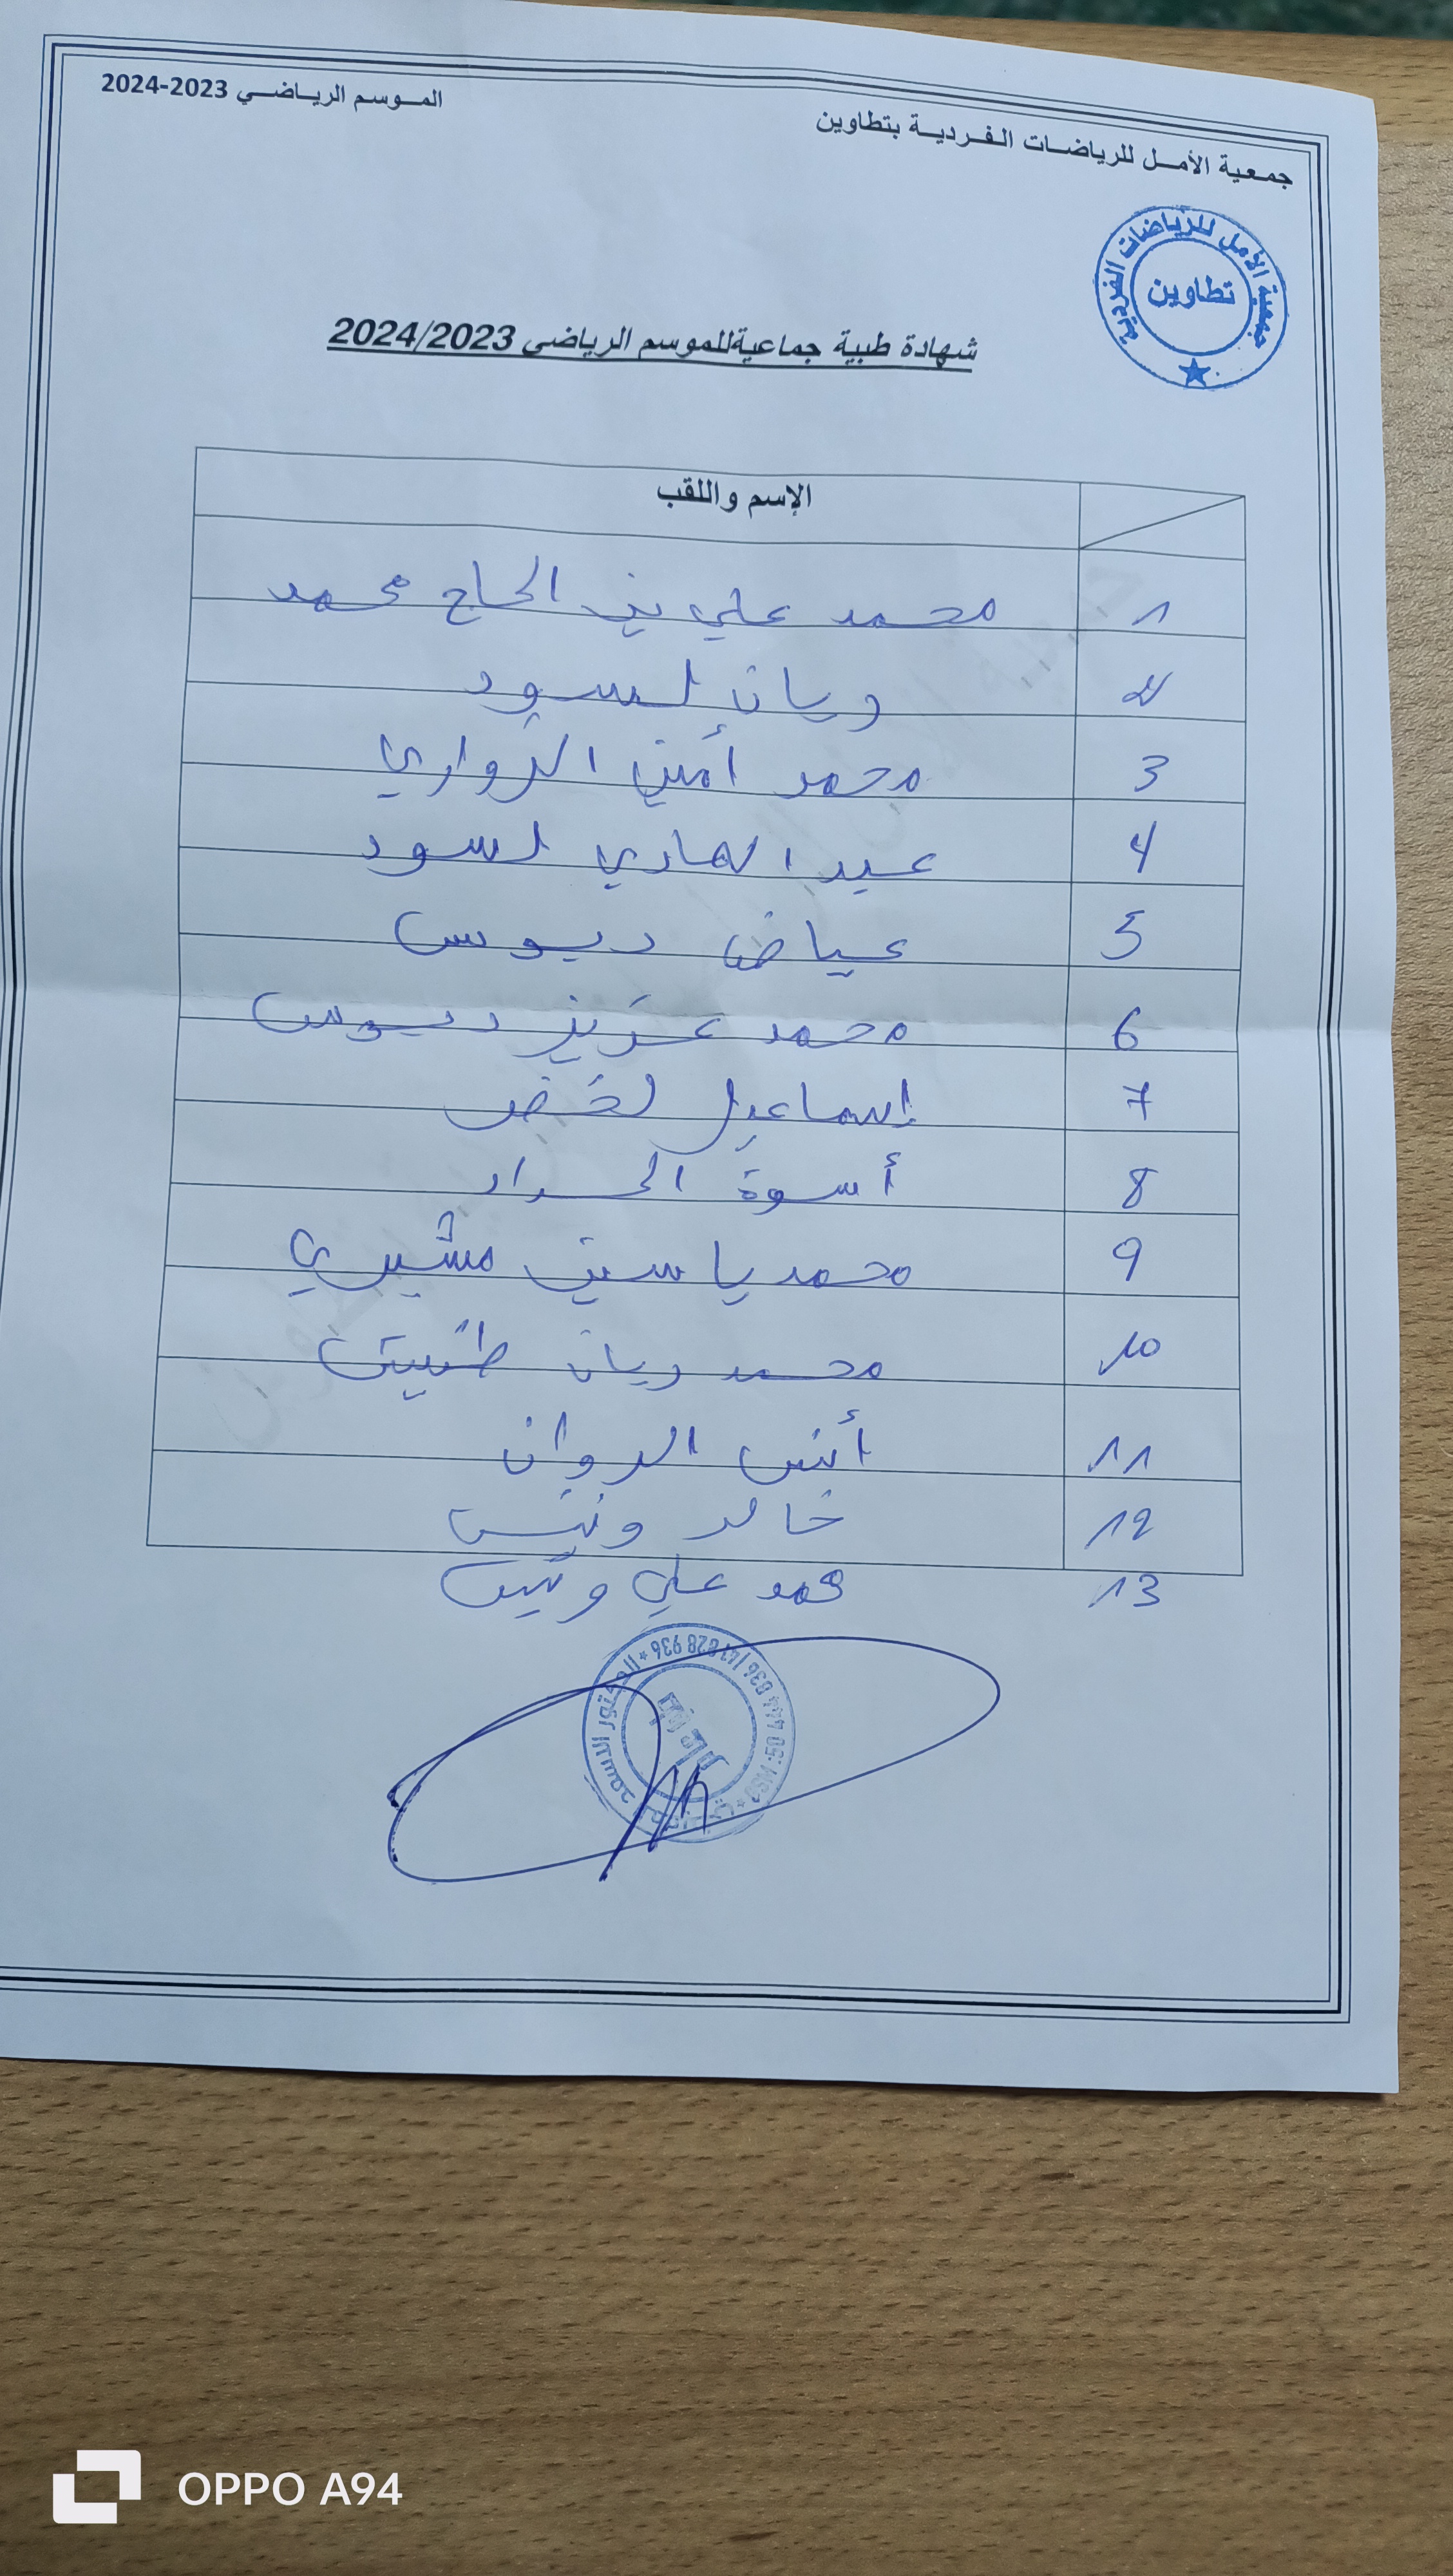 جمعية الأمل للرياضات الفردية بتطاوين
الموسم الرياضي 2023-2024
جمعية الأمل للرياضات الفردية
تطاوين
شهادة طبية جماعيةللموسم الرياضي 2024/2023
الإسم واللقب
1 محمد علي بن الحاج محمد
2 ريان لسود
3 محمد أمين الزواري
4 عبد الهادي لسود
5 عياض دبوس
6 محمد عزيز دبوس
7 إسماعيل لخضر
8 أسوة الحداد
9 محمد ياسين مشيري
10 محمد ريان
11 أنس
12 خالد ونيس
13 محمد علي ونيس
OPPO A94